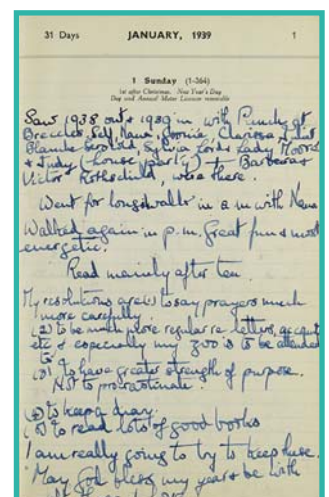 31 Days JANUARY, 1939 1
1 Sunday (1-364)
1st after Christmas. New Year's Day
Day and Annual Motor Licences renewable
Saw 1938 out & 1939 in with Punch at
Breccles, Self, Nana, Joonie, Clarissa
Blanche Sylvia Lady Moore
& Judy (house party) & Barbara &
Victor Rothschild, were there.
Went for long walk in a.m with Nana
Walked again in p.m. Great fun & most
energetic.
Read mainly after tea.
My resolutions are (1) to say prayers much
more carefully.
(2) to be much more regular re letters, accounts
etc & especially my zoo is to be attended
to.
(3) To have greater strength of purpose.
Not to procrastinate.
(4) to keep a diary.
(5) to read lots of good books
I am really going to try to keep these.
May God bless my year & be with